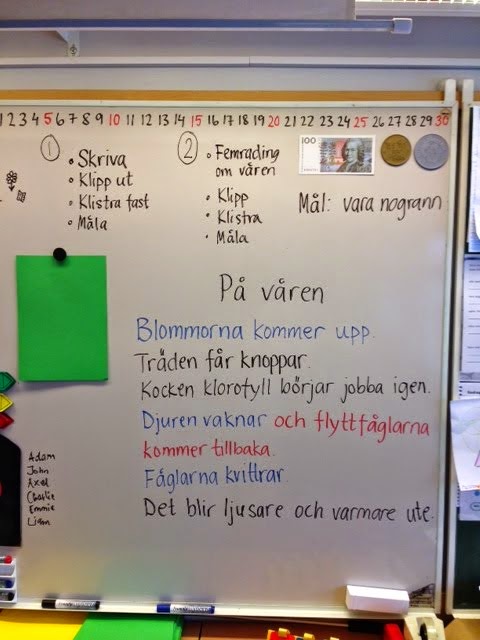 1 2 3 4 5 6 7 8 9 10 11 12 13 14 15 16 17 18 19 20 21 22 23 24 25 26 27 28 29 30
1
• Skriva
• Klipp ut
• Klistra fast
• Måla
2
• Femrading
om våren
• Klipp
• Klistra
• Måla
100
Mål: vara nogrann
På våren
Blommorna kommer upp.
Träden får knoppar.
Kocken klorofyll börjar jobba igen.
Djuren vaknar och flyttfåglarna
kommer tillbaka.
Fåglarna kvittrar.
Det blir ljusare och varmare ute.
Adam
John
Axel
Charlie
Emmie
Liam